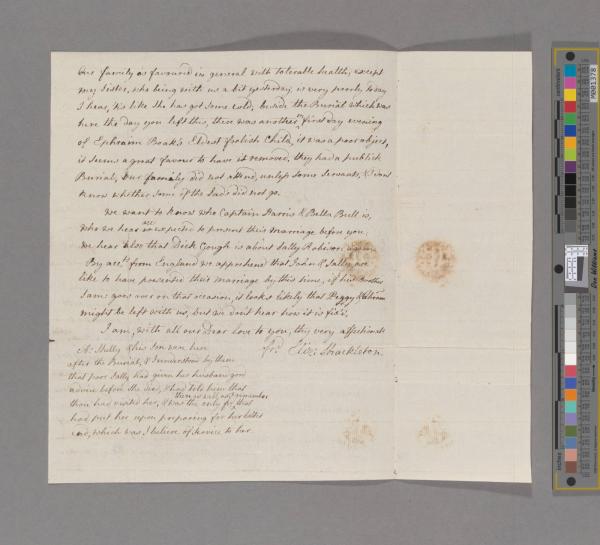 Our family is favoured in general with tolerable health, except
my Sister, who being with us a bit yesterday, is very poorly to day
I hear, tis like she has got some cold; beside the Burial which was
here the day you left this, there was another on first day evening
of Ephraim Boak's Eldest foolish Child, it was a poor object,
it seems a great favour to have it removed, they had a publick
Burial, our family did not attend, unless some Servants, & I dont
know whether some of the Lads did not go.
We want to know who Captain Harris & Bella Bell is,
who we hear are expected to present their marriage before you,
we hear also that Dick Gough is about Sally Robinson
By acct. from England we apprehend that John & Sally are
like to have presented their marriage by this time, if his Brother
James goes over on that occasion, it looks likely that Peggy
might be left with us, but we dont hear how it is fix'd.
I am, with all our Dear love to you, thy very affectionate
frd. Eliz: Shackleton.
A: Shelly & his Son were here
after the Burial, & I understood by them
that poor Sally had given her husband good
advice before she died, & had told him that
thou had visited her, & was the only frd. that
had put her upon preparing for her latter
end, which was, I believe of service to her
M001378
centimetres
inches
Don Williams